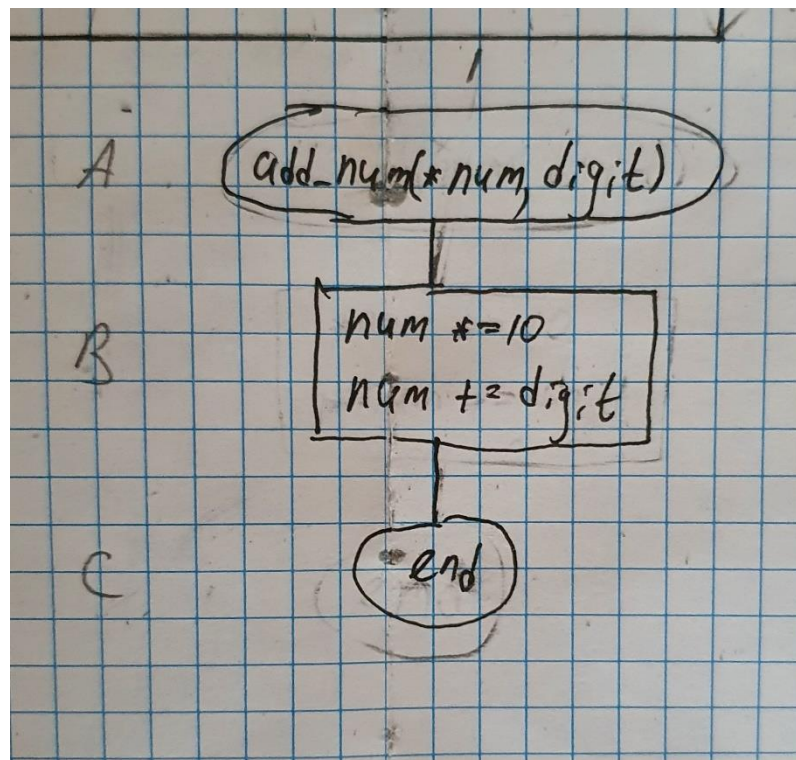 1
A
add_num(*num, digit)
B
num *=10
num += digit
C
end